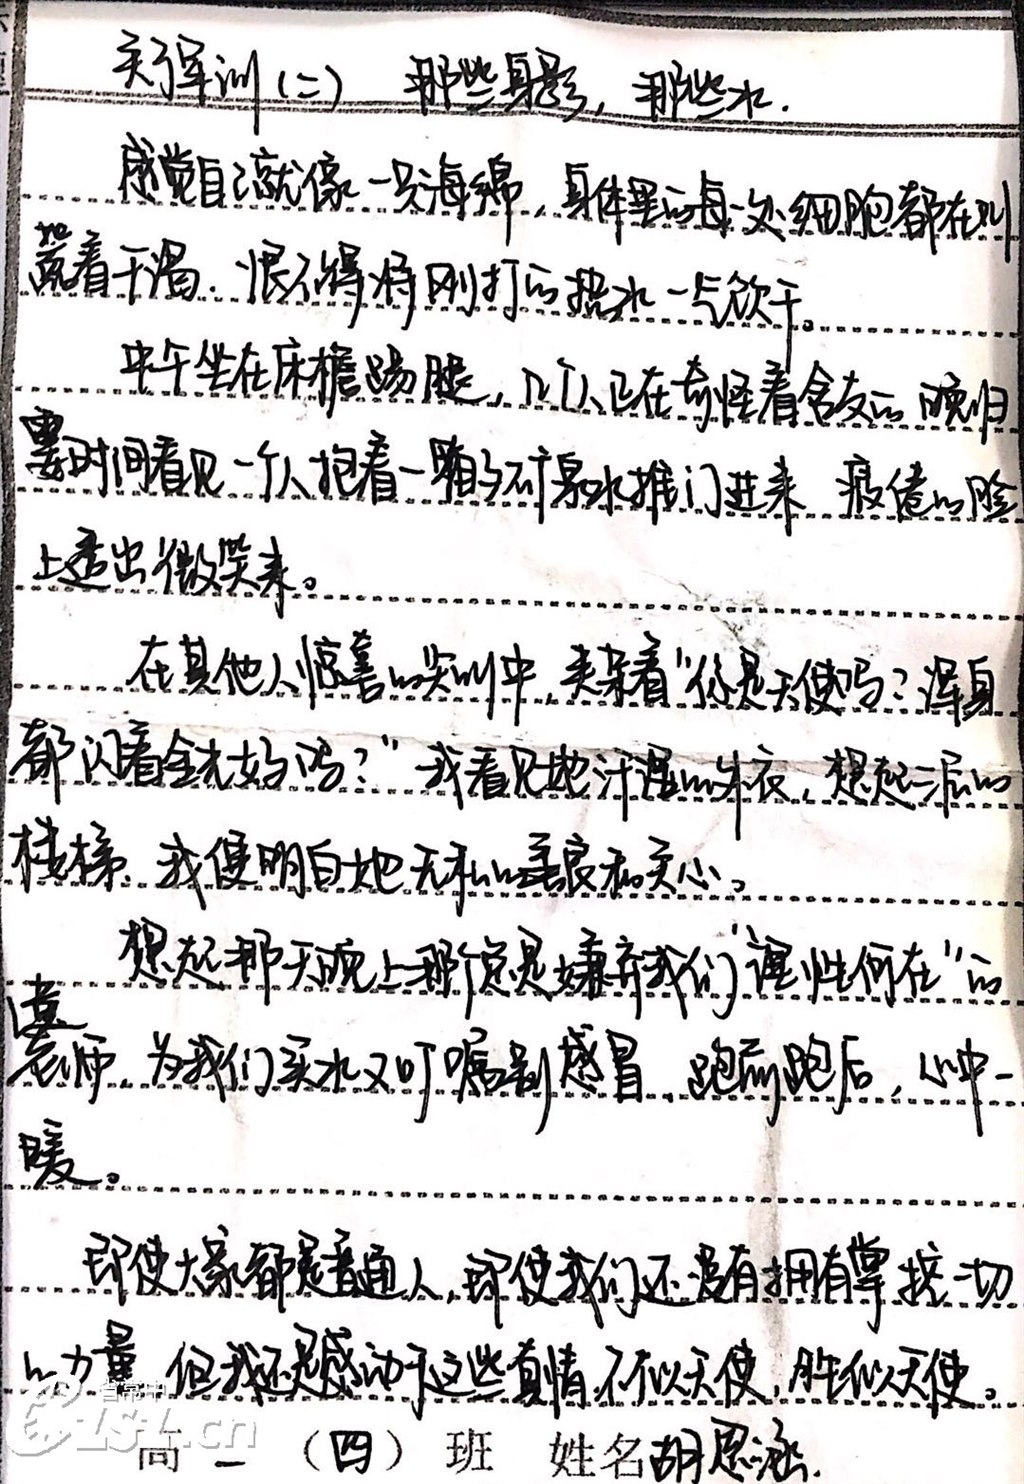 关于军训(二) 那些身影，那些水.
感觉自己就像一只海绵，身体里的每一处细胞都在叫
着干渴.恨不得将刚打的热水一气饮干。
中午坐在床檐烫腿，几个人正在奇怪着舍友的晚归
霎时间看见一个人抱着一箱子矿泉水推门进来 疲倦的脸
上透出微笑来。
在其他人惊喜的尖叫中，夹杂着"你是天使吗？浑身
都闪着金光好吗？"我看见她汗湿的外衣，想起三层的
楼梯、我便明白她无私的善良和关心。
想起那天晚上那个总是嫌弃我们"理性何在"的
老师，为我们买水又叮嘱别感冒、跑前跑后，心中一
暖。
即使大家都是普通人，即使我们还没有拥有掌控一切
的力量，但我还是感动于这些真情.不似天使，胜似天使。
省常中
CZSZ.cn
高一（四）班 姓名胡思涵.